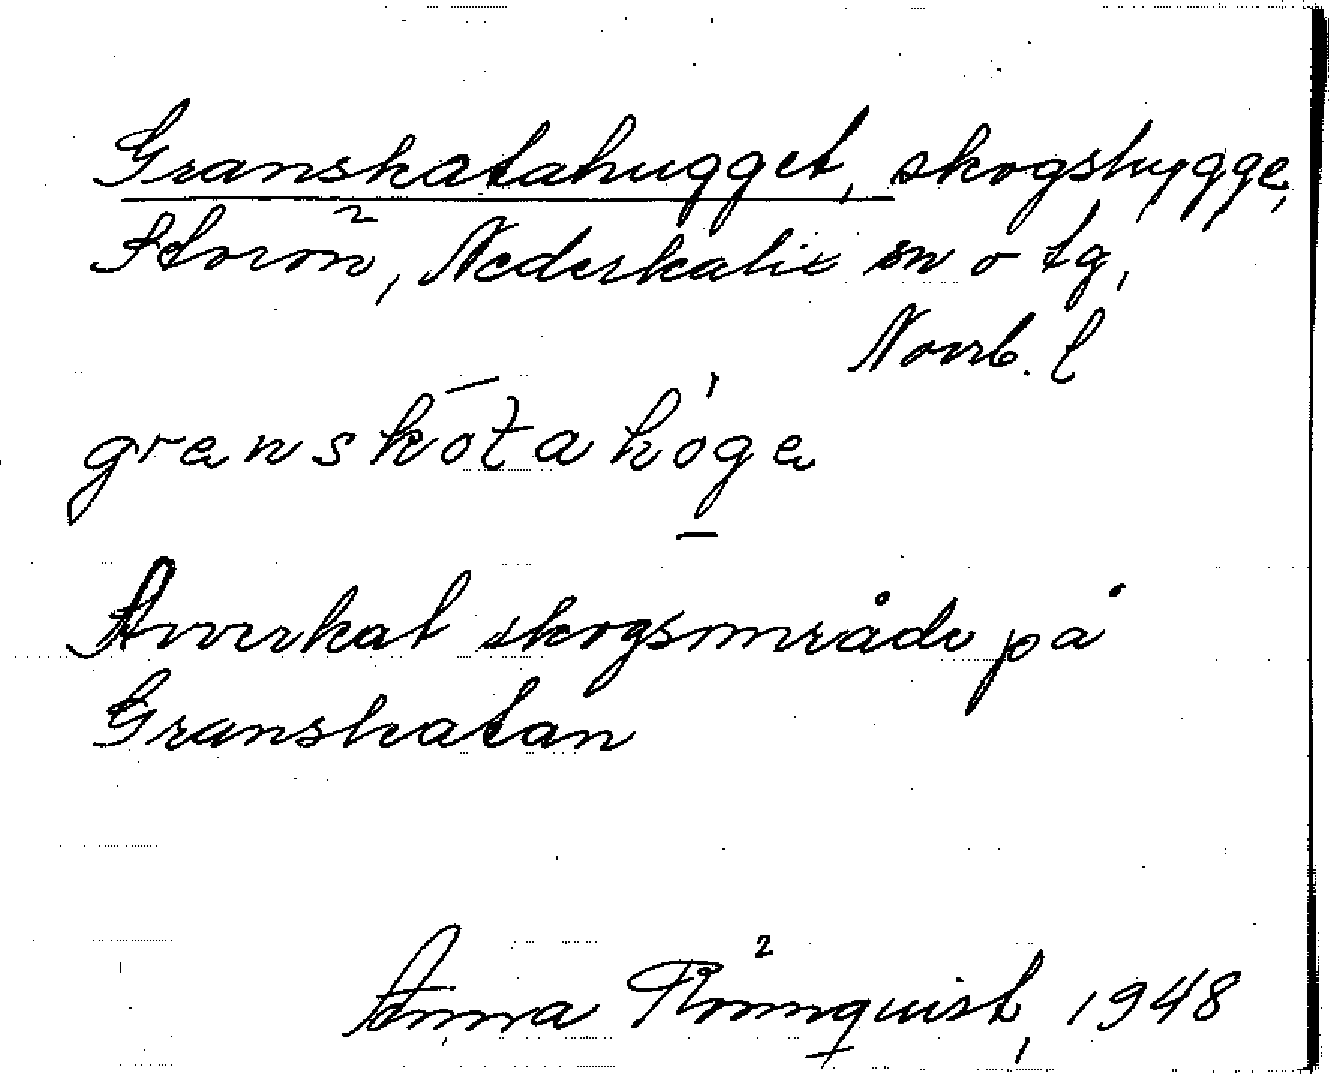 Granskatahugget, skogshygge,
Storön, Nederkalix sn o tg,
Norrb. l
granskōtahóge
Avverkat skogsområde på
Granskatan
Anna Rönnquist, 1948